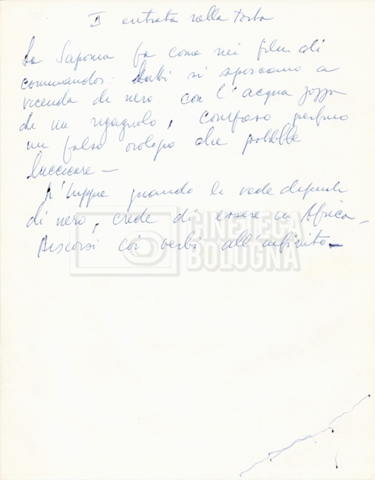 II entrata nella torba
La Saponia fa come nei film di
commandos. Tutti si sporcano a
vicenda di nero con l'acqua zozza
di un rigagnolo, compreso perfino
un falso orologio che potrebbe
luccicare –
quando le vede dipinte
di nero, crede di essere in Africa –
Discorsi coi verbi all'infinito –
CINETECA
BOLOGNA